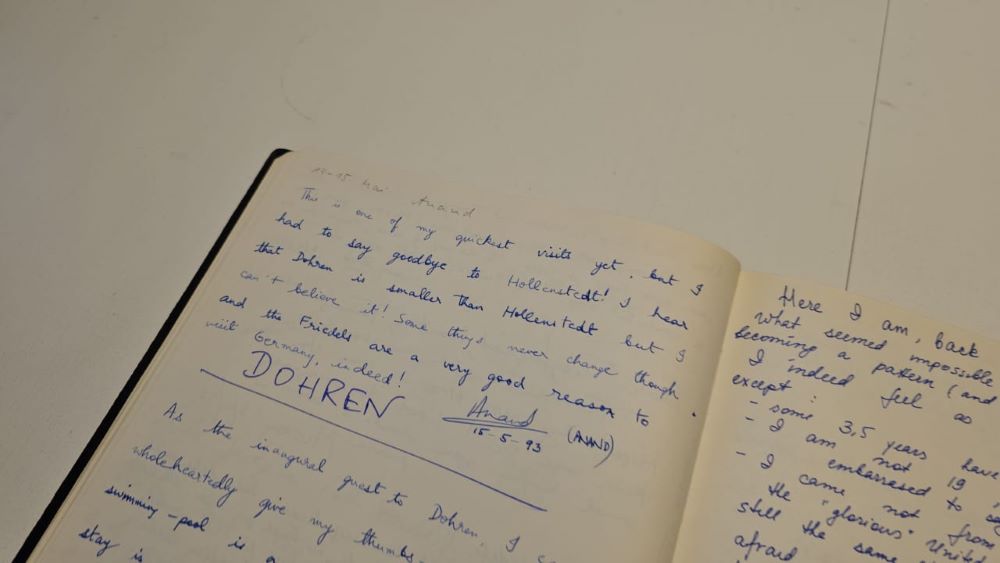 14-15 Mai Anand
This is one of my quickest visits yet, but I
had to say goodbye to Hollenstedt! I hear
that Dohren is smaller than Hollenstedt but I
can't believe it! Some things never change though
and the Friedels are a very good reason to
visit Germany, indeed!
DOHREN
Anand (ANAND)
15-5-93
As the inaugural guest to Dohren, I
wholeheartedly give my thumbs
swimming-pool is a
stay is
Here I am, back
what seemed impossible
becoming a pattern (and
I indeed feel as
except:
- some 3,5 years have
- I am not 19
- I embarassed to
- I came not from
the "glorious" United
still the same
afraid